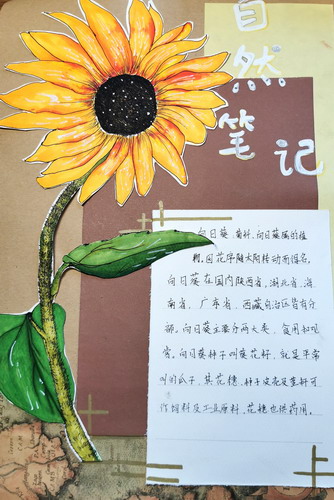 自然
笔记
向日葵,菊科,向日葵属的植
物,因花序随太阳转动而得名。
向日葵在国内陕西省,湖北省、海
南省、广东省、西藏自治区皆有分
部。向日葵主要分两大类、食用和观
赏。向日葵种子叫葵花籽,就是平常
叫的瓜子,其花穗、种子皮壳及茎秆可
作饲料及工业原料、花穗也供药用。